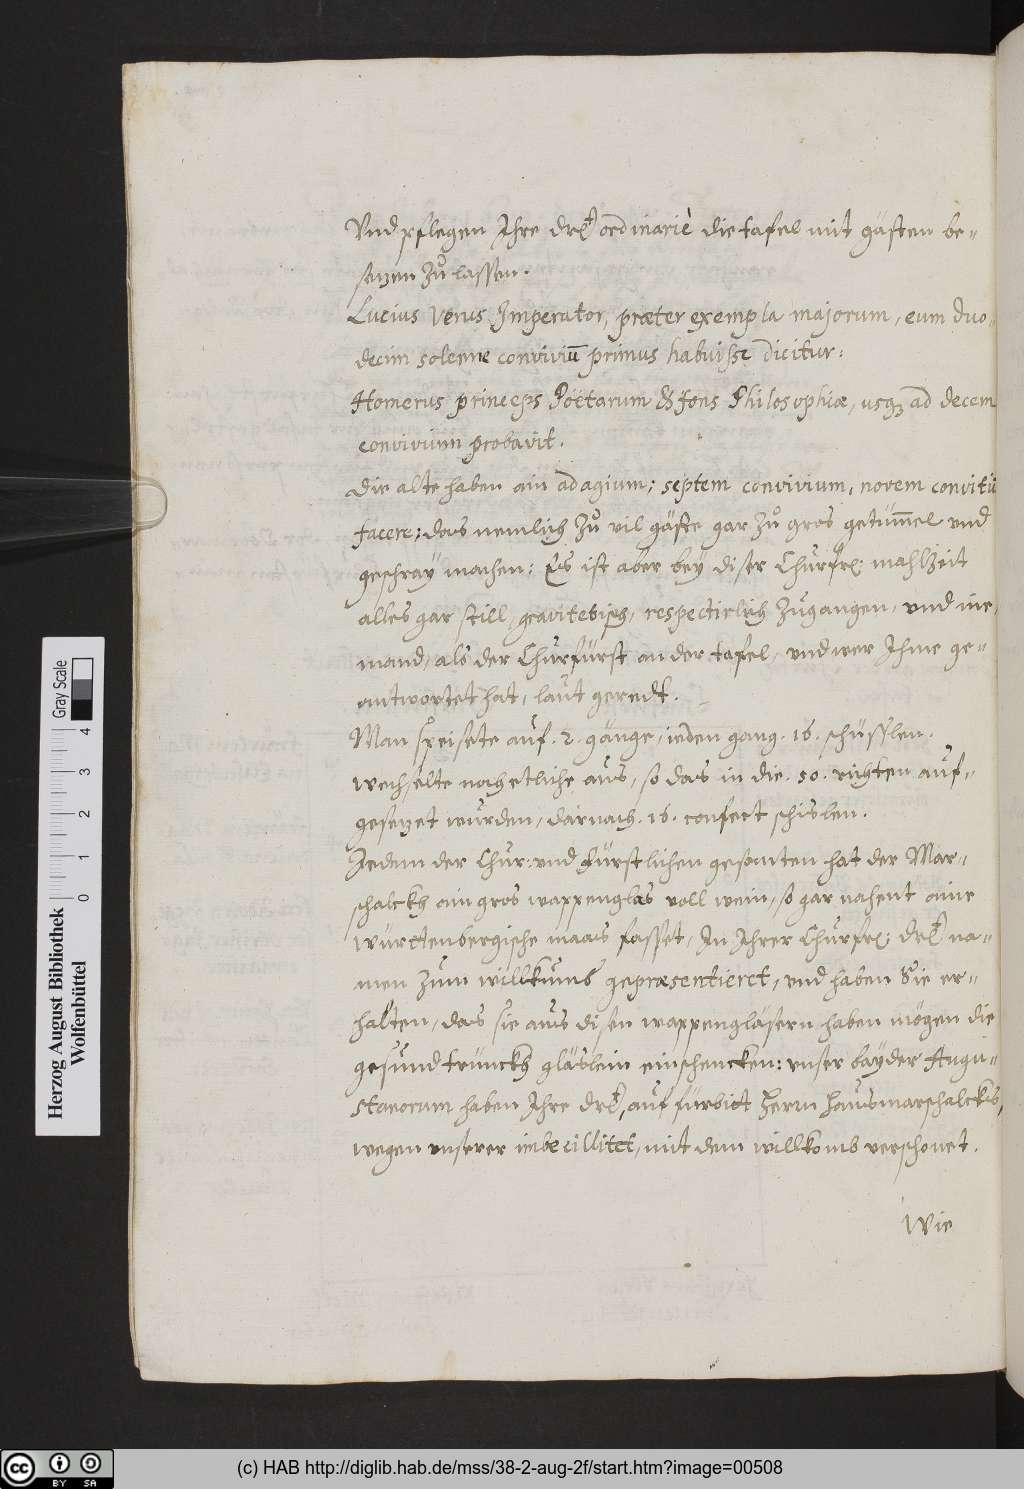 Vnd pflegen Ihre Drlt ordinariè die tafel mit gästen be-
sezen zů lassen.
Lucius Verus Imperator, præter exempla majorum, cum duo-
decim solenne conviviū primus habuisse dicitur:
Homerus princeps Poëtarum & fons Philosophiæ, usq3 ad decem
convivium probavit.
Die alte haben ain adagium; septem convivium, novem convitiū
facere; das nemlich zů vil gäste gar zů gros getům̄el vnd
geschray machen: Es ist aber bey diser Churfrl: mahlzeit
alles gar still, gravitetisch, respectirlich zugangen, vnd nie-
mand, als der Churfürst an der tafel, vnd wer Ihme ge-
antwortet hat, laut geredt.
Man speisete auf. 2. gänge, ieden gang. 16. schüsslen.
wechselte noch etliche aus, so das in die. 50. richten auf-
gesezet wurden, darnach. 16. confect schislen.
Iedem der Chur: vnd fürstlichen gesanten hat der Mar-
schalckh ain gros wappenglas voll wein, so gar nahent aine
Württenbergische maas fasset, In Ihrer Churfrl: Drlt na-
men zum willkumb gepræsentieret, vnd haben Sie er-
halten, das sie aus disen wappengläsern haben mögen die
gesundtrunckh gläslein einschencken: vnser bayder Augu-
stanorum haben Ihre Drlt, auf fürbitt Herrn Hausmarschalcks,
wegen vnserer imbecillitet, mit dem willkomb verschonet.
Wie
Herzog August Bibliothek
Wolfenbüttel
Gray Scale
0 1 2 3 4
cc BY SA
(c) HAB http://diglib.hab.de/mss/38-2-aug-2f/start.htm?image=00508